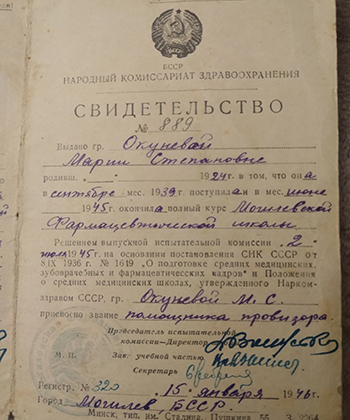 БССР
НАРОДНЫЙ КОМИССАРИАТ ЗДРАВООХРАНЕНИЯ
СВИДЕТЕЛЬСТВО
№ 889
Выдано гр. Окуневой
Марии Степановне
родивш. 1924 в том, что она
в сентябре мес. 1939 поступила и в мес. июне
1945 г. окончила полный курс Могилевской
Фармацевтической школы
Решением выпускной испытательной комиссии „ 2 "
июля 1945 г. на основании постановления СНК СССР от
8/IX 1936 г. № 1619 „О подготовке средних медицинских,
зубоврачебных и фармацевтических кадров" и Положения
о средних медицинских школах, утвержденного Нарком-
здравом СССР, гр. Окуневой М. С.
присвоено звание помощника провизора.
Председатель испытательной
комиссии—Директор
М. П. Зав. учебной частью
Секретарь
Регистр. № 320 „ 15 " января 1946 г.
Город Могилев БССР
Минск, тип. им. Сталина. Пушкина, 55. З. 2264